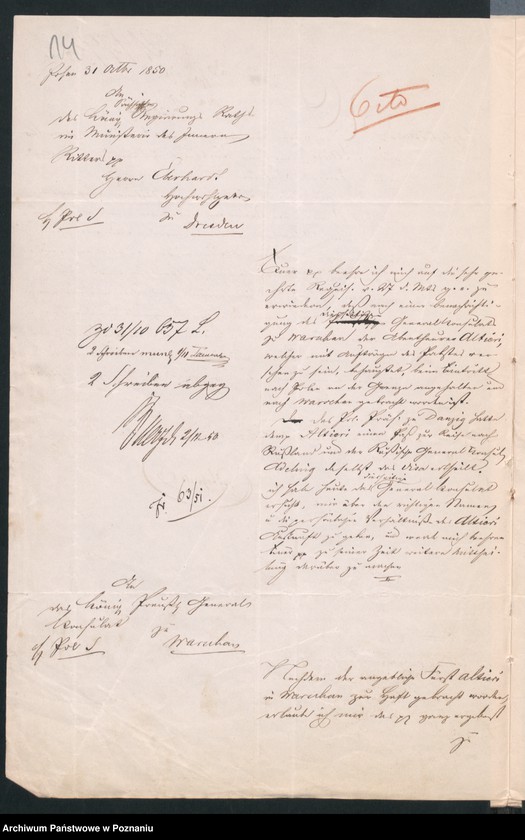 14
Posen 31 Octbr 1850
An
des Königl Sächsischen Regierungs Raths
im Ministerio des Innern
Ritters pp
Herrn Eberhardt
Hochwohlgeboren
zu Dresden
Pol S
Cito
Euer pp beehre ich mich auf die sehr ge-
ehrte v. 27 d. Mts zu
erwiedern, daß nach einer Benachrichti-
gung des General Consulats
zu Warschau der Abentheurer Altieri,
welcher mit Aufträgen des Papstes ver-
sehen zu sein behauptet, beim Eintritt
nach Polen an der Grenze angehalten und
nach Warschau gebracht worden ist.
Das Pol. Präs. zu Danzig hatte
dem Altieri einen Paß zur Reise nach
Rußland und der Russische General Consul
Adelung daselbst das Visa ertheilt,
ich habe heute das General Consulat
ersucht, mir über den richtigen Namen
u die Verhältnisse des Altieri
Auskunft zu geben, und werde mich beehren
Euer pp zu seiner Zeit weitere Mitthei-
lung darüber zu machen
zd 31/10 657 L.
2 Schreiben
2/11 50
63/51.
An
das Königl Preuß General
Konsulat
zu
Warschau
Pol S
Nachdem der angebliche Fürst Altieri
in Warschau zur Haft gebracht worden,
erlaube ich mir das pp ganz ergebenst
zu
Archiwum Państwowe w Poznaniu